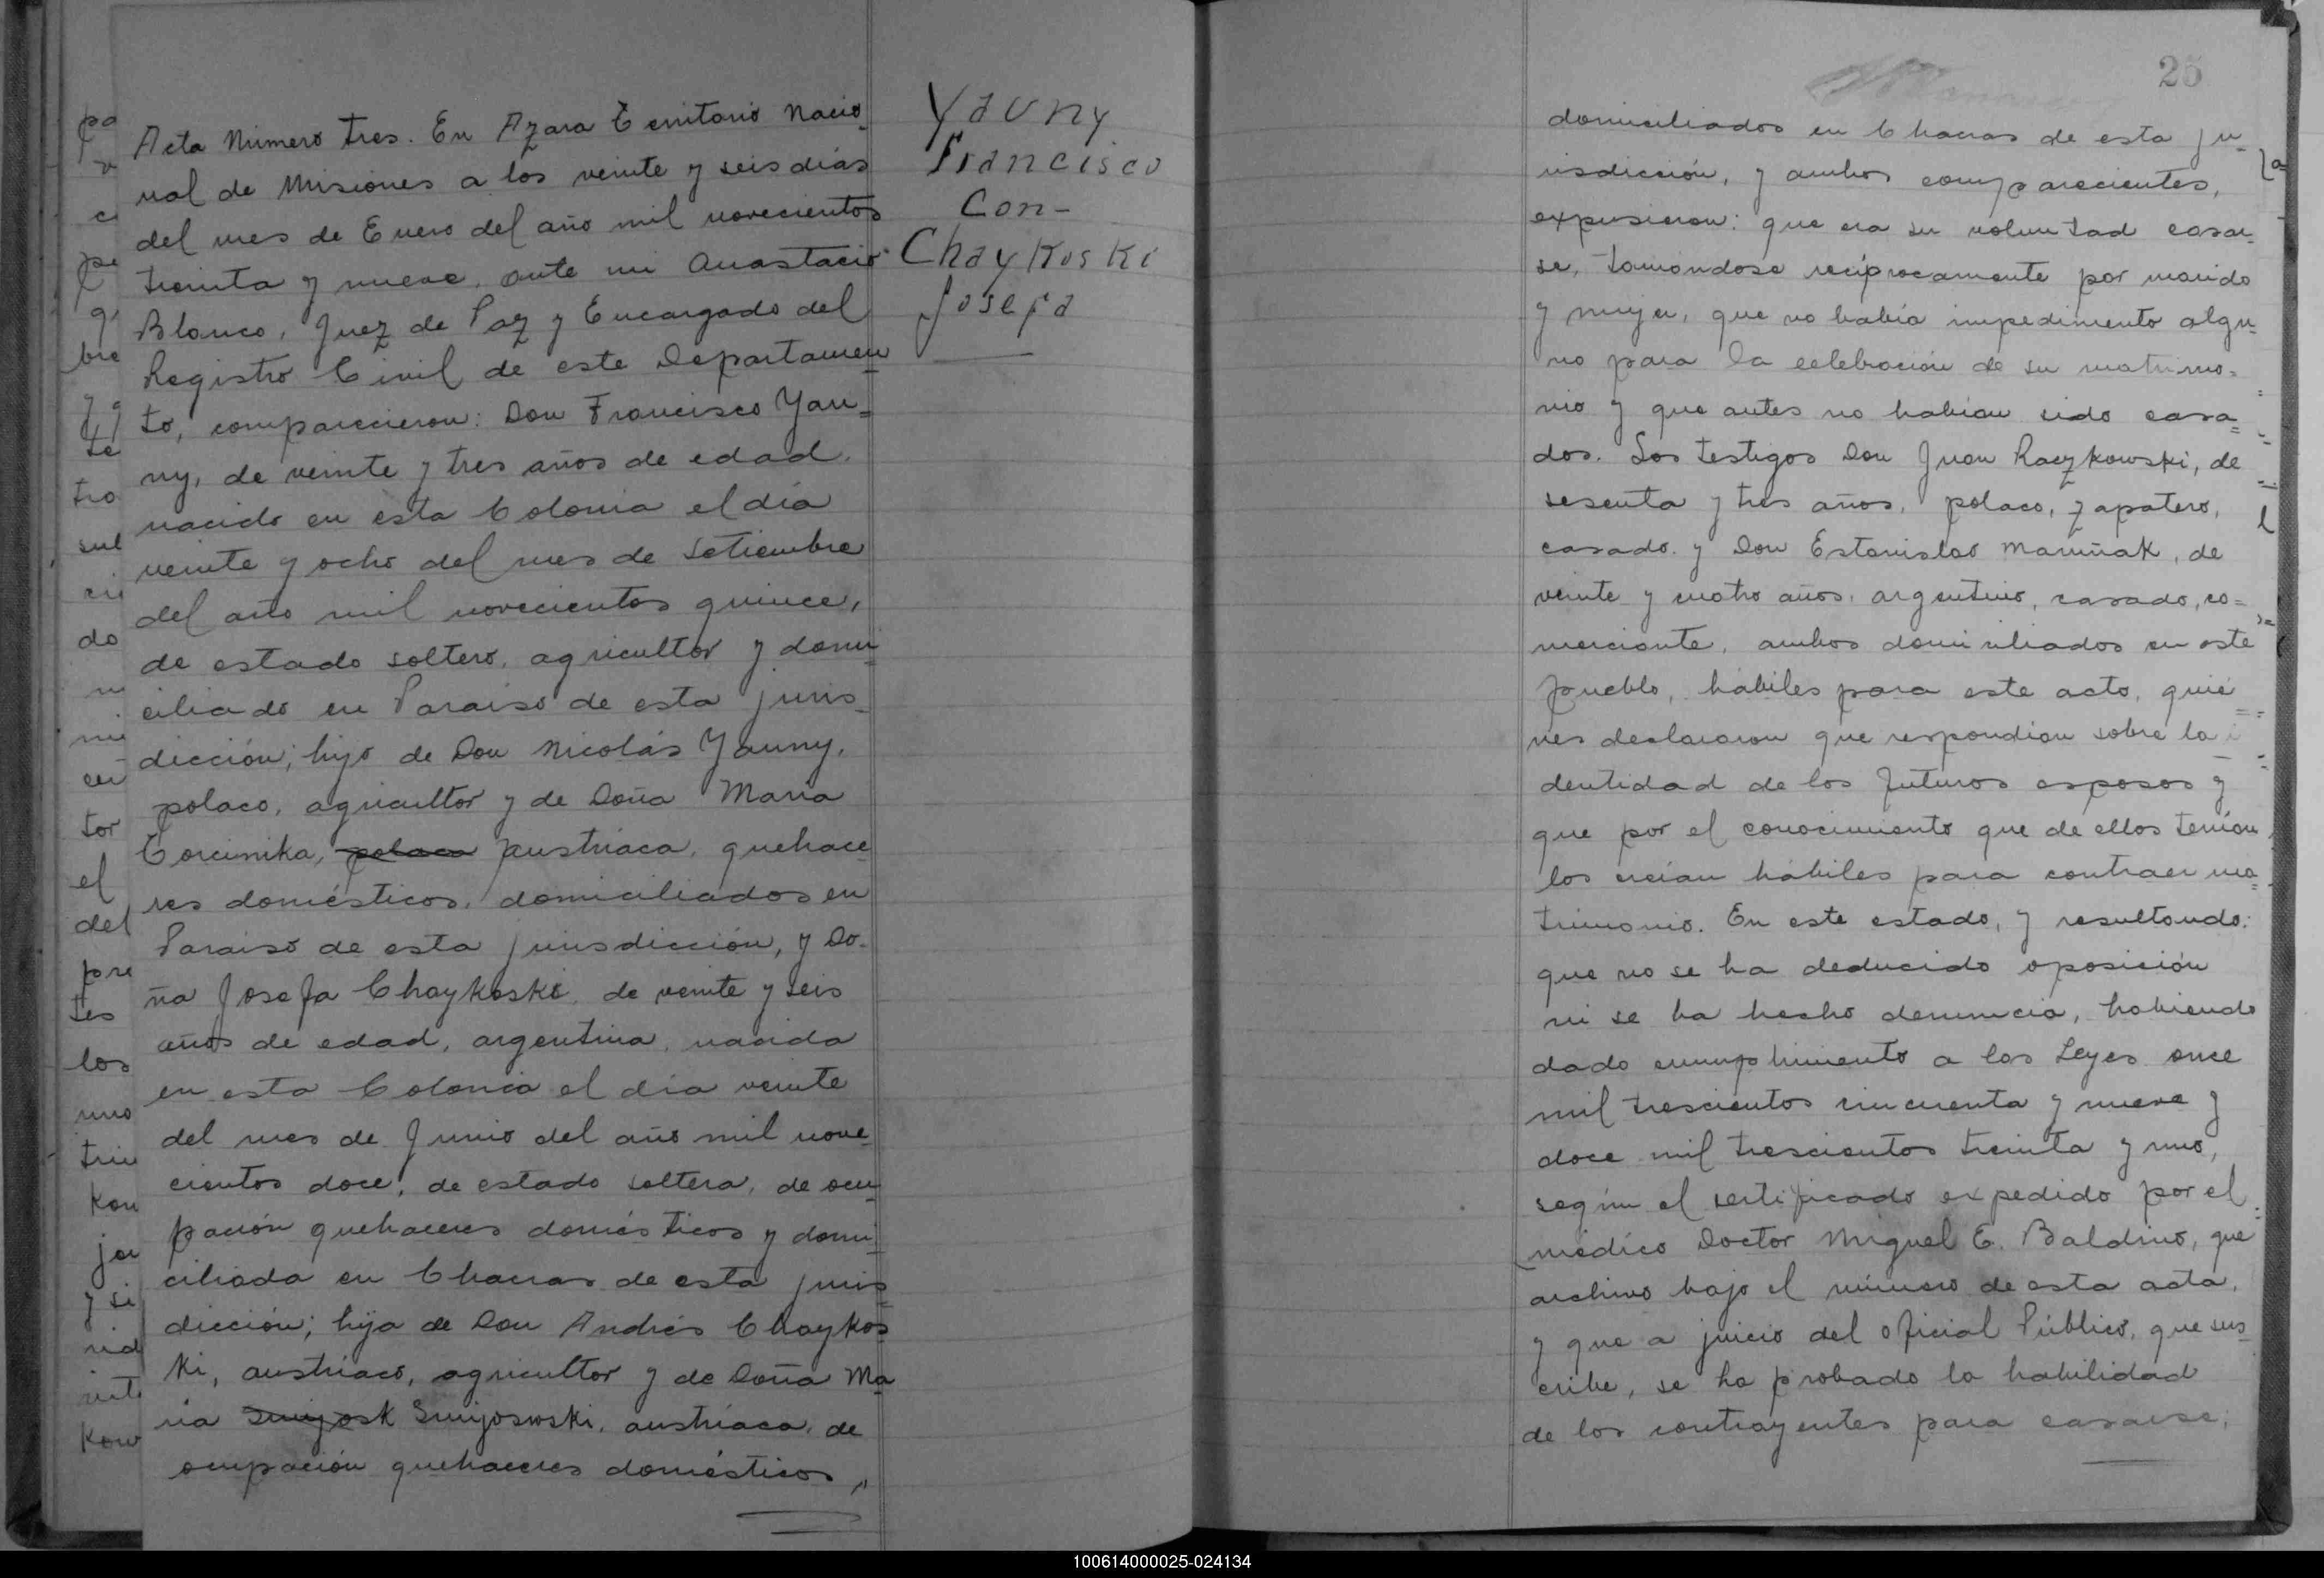 Acta Número tres. En Azara Territorio Nacio_
nal de Misiones a los veinte y seis días
del mes de Enero del año mil novecientos
treinta y nueve, ante mi Anastacio
Blanco, Juez de Paz y Encargado del
Registro Civil de este Departamen_
to, comparecieron: Don Francisco Yau=
ny, de veinte y tres años de edad,
nacido en esta Colonia el día
veinte y ocho del mes de Setiembre
del año mil novecientos quince,
de estado soltero, agricultor y domi=
ciliado en Paraiso de esta juris_
dicción; hijo de Don Nicolás Yauny,
polaco, agricultor y de Doña María
Corcinika, polaca austríaca, quehace_
res domésticos, domiciliados en
Paraiso de esta jurisdicción, y Do_
ña Josefa Chaykoski, de veinte y seis
años de edad, argentina, nacida
en esta Colonia el día veinte
del mes de Junio del año mil nove_
cientos doce, de estado soltera, de ocu_
pación quehaceres domésticos y domi_
ciliada en Chacras de esta juris=
dicción; hija de Don Andrés Chaykos=
ki, austríaco, agricultor y de Doña Ma_
ría Smijosk Smijoswski, austríaca, de
ocupación quehaceres domésticos,
Yauny
Francisco
Con-
Chaykoski
Josefa
25
domiciliados en Chacras de esta ju_
risdicción, y ambos comparecientes,
expusieron: que era su voluntad casar=
se, tomándose recíprocamente por marido
y mujer, que no había impedimento algu=
no para la celebración de su matrimo=
nio y que antes no habían sido casa=
dos. Los testigos Don Juan Raczkowski, de
sesenta y tres años, polaco, zapatero,
casado y Don Estanislao Maruñak, de
veinte y cuatro años, argentino, casado, co=
merciante, ambos domiciliados en este
pueblo, hábiles para este acto, quié=
nes declararon que respondían sobre la i
dentidad de los futuros esposos y
que por el conocimiento que de ellos tenían
los creían hábiles para contraer ma=
trimonio. En este estado, y resultando:
que no se ha deducido oposición
ni se ha hecho denuncia, habiendo
dado cumplimiento a las Leyes once
mil trescientos cincuenta y nueve y
doce mil trescientos treinta y uno,
según el sertificado expedido por el
médico Doctor Miguel E. Baldino, que
archivo bajo el número de esta acta,
y que a juicio del Oficial Público, que sus=
cribe, se ha probado la habilidad
de los contrayentes para casarse;
100614000025-024134